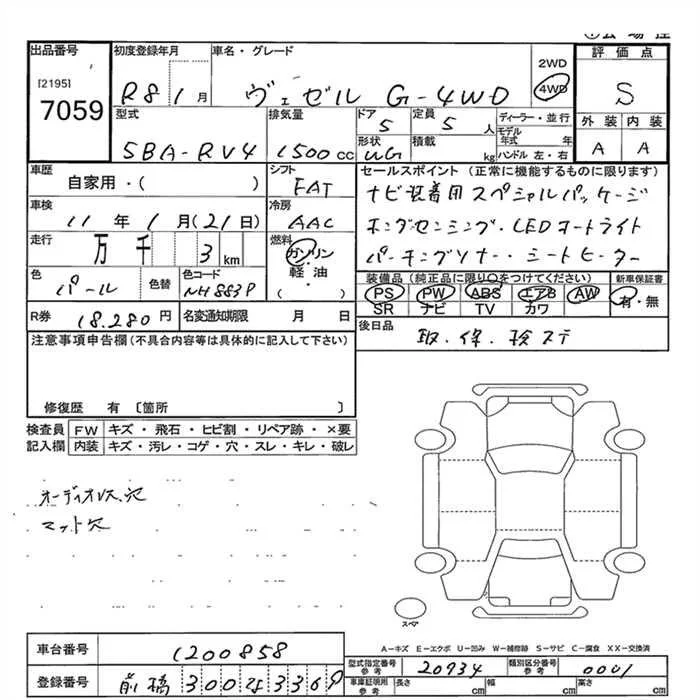 出品番号
[2195]
7059
初度登録年月
R8 1月
車名・グレード
ヴェゼル G-4WD
2WD
4WD
評価点
S
外装 内装
A A
型式
5BA-RV4
排気量
1500 cc
ドア
5
定員
5 人
形状
WG
積載
kg
ディーラー・並行
モデル年式 年
ハンドル 左・右
車歴
自家用・( )
シフト
FAT
車検
11年 1月(21日)
冷房
AAC
走行
万 千 3 km
燃料
ガソリン
軽油
( )
色
パール
色替
色コード
NH883P
R券
18.280 円
名変通知期限 月 日
セールスポイント (正常に機能するものに限ります)
ナビ装着用スペシャルパッケージ
ホンダセンシング・LEDオートライト
パーキングソナー・シートヒーター
装備品 (純正品に限り○をつけてください)
PS PW ABS エアB AW
SR ナビ TV カワ
新車保証書
有・無
後日品
取.保.検ステ
注意事項申告欄(不具合内容等は具体的に記入して下さい)
修復歴 有 〔箇所 〕
検査員記入欄
FW キズ・飛石・ヒビ割・リペア跡・×要
内装 キズ・汚レ・コゲ・穴・スレ・キレ・破レ
オーディオレス欠
マット欠
スペア
A－キズ E－エクボ U－凹み W－補修跡 S－サビ C－腐食 XX－交換済
車台番号
1200858
登録番号
前橋 300
型式指定番号
参考
20934
類別区分番号
参考
0001
車庫証明用
参考
長さ cm 幅 cm 高さ cm